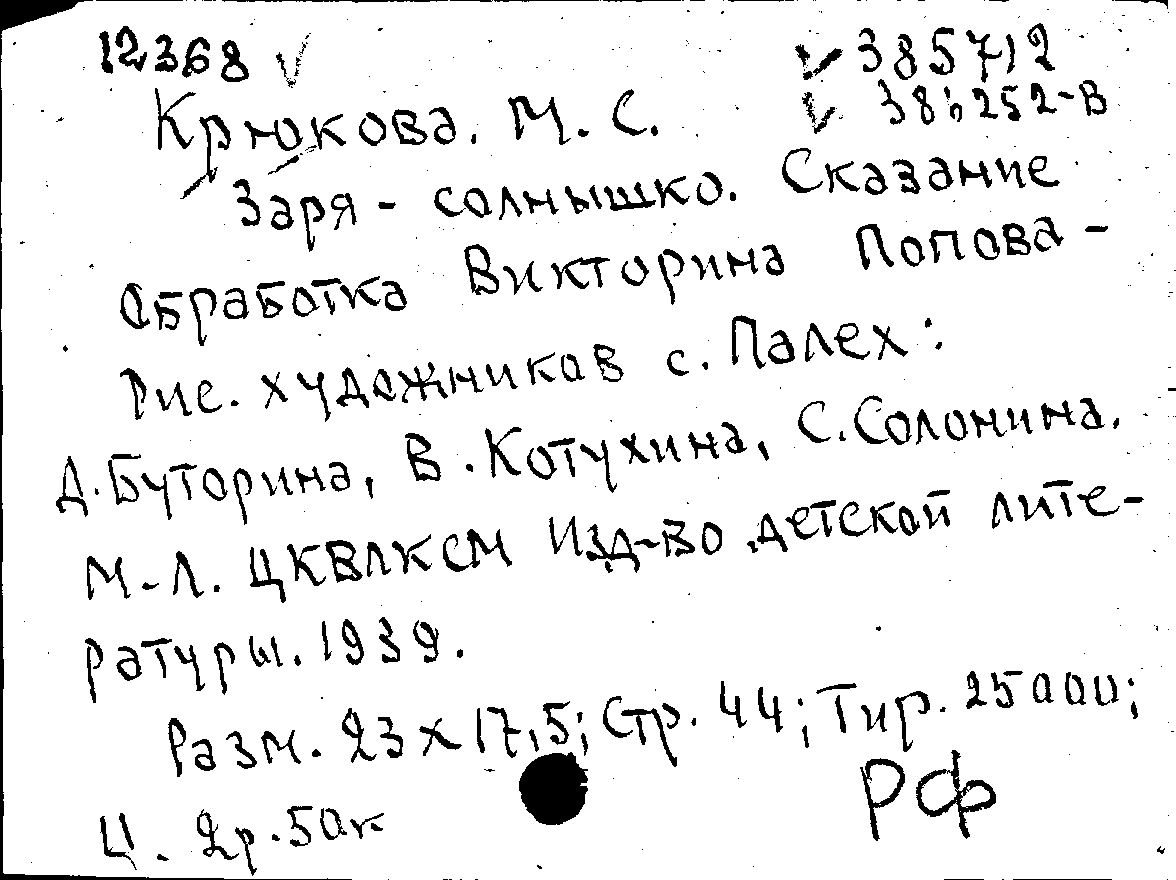 12368 ✓ ✓ 385712
Крюкова. М. С. ✓ 386252-В
Заря - солнышко. Сказание
Обработка Викторина Попова -
Рис. художников с. Палех:
Д. Буторина, В. Котухина, С. Солонина.
М-Л. ЦКВЛКСМ Изд-во детской лите-
ратуры. 1939.
Разм. 23 х 17,5; Стр. 44; Тир. 25000;
Ц. 2р. 50к
РФ